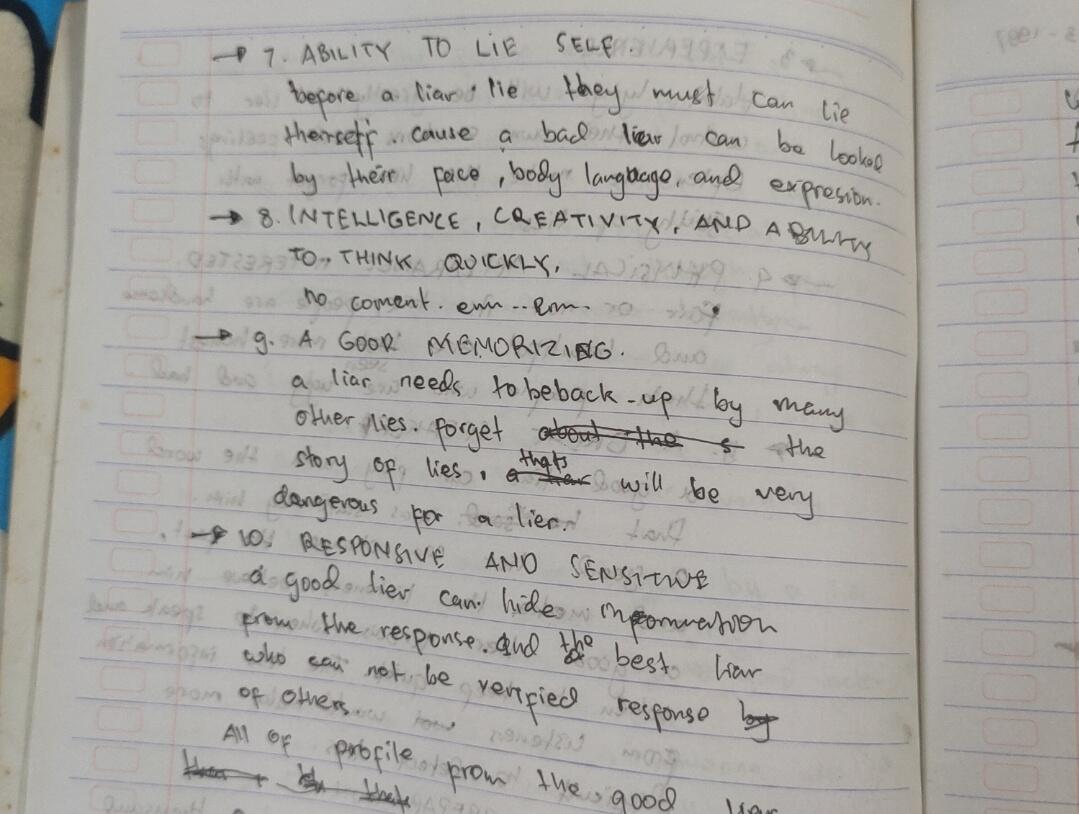 → 7. ABILITY TO LIE SELF.
before a liar lie they must can lie
themself. cause a bad liar can be looked
by their face, body language, and expresion.
→ 8. INTELLIGENCE, CREATIVITY, AND ABILITY
TO THINK QUICKLY.
no coment. emm .. emm.
→ 9. A GOOD MEMORIZING.
a liar needs to be back-up by many
other lies. forget about the s the
story of lies, thats will be very
dangerous for a lier.
→ 10. RESPONSIVE AND SENSITIVE
a good lier can hide information
from the response. and the best liar
who can not be verified response by
of others.
All of profile from the good liar